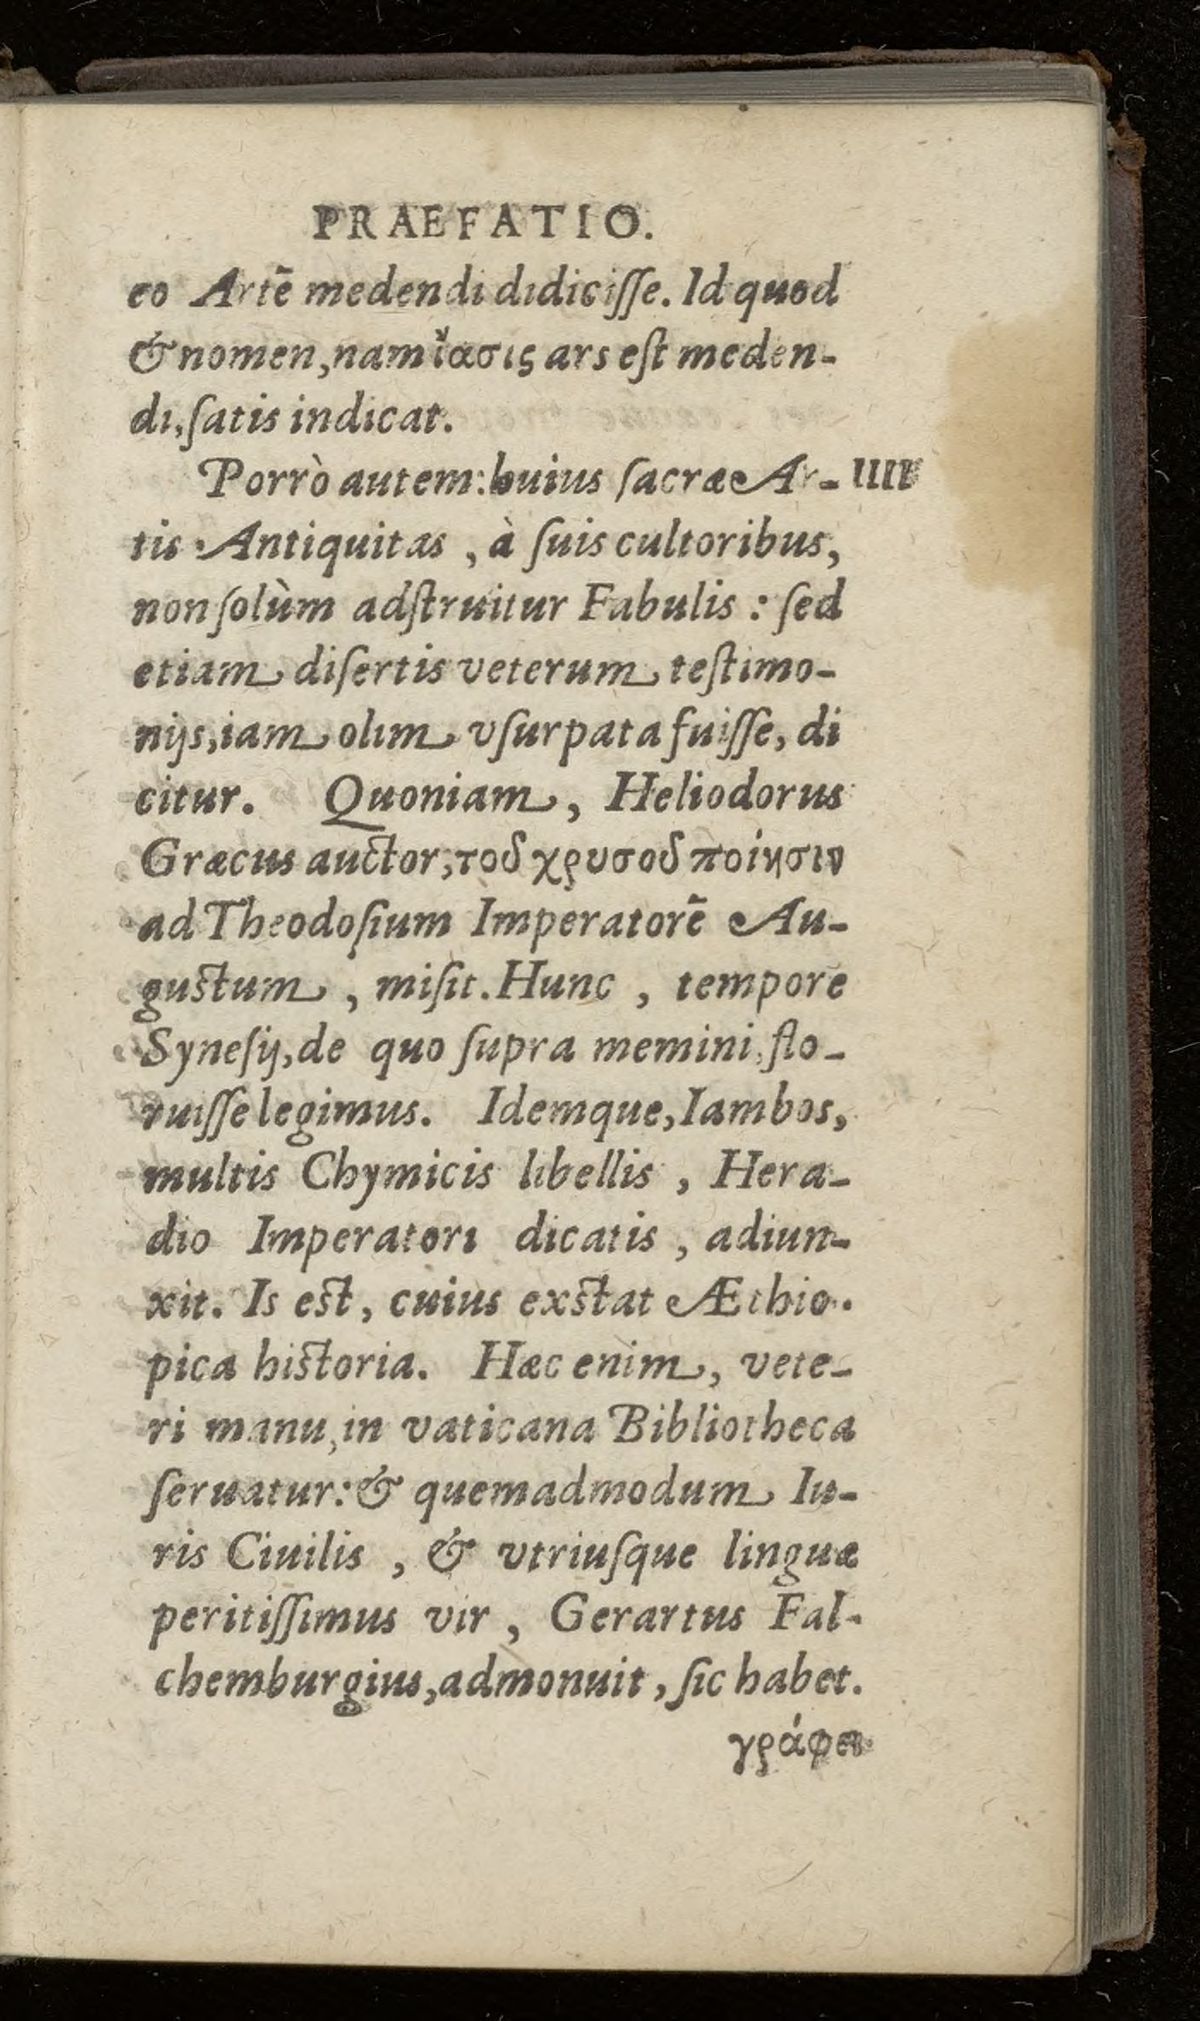 PRAEFATIO.
eo Artē medendi didiciſſe. Id quod
& nomen, nam ἴασις ars eſt meden-
di, ſatis indicat.
Porrò autem: huius ſacræ Ar- IIII
tis Antiquitas, à ſuis cultoribus,
non ſolùm adſtruitur Fabulis: ſed
etiam diſertis veterum teſtimo-
nijs, iam olim vſurpata fuiſſe, di
citur. Quoniam, Heliodorus
Græcus auctor, τοῦ χρυσοῦ ποίησιν
ad Theodoſium Imperatorē Au-
guſtum, miſit. Hunc, tempore
Syneſij, de quo ſupra memini, flo-
ruiſſe legimus. Idemque, Iambos,
multis Chymicis libellis, Hera-
dio Imperatori dicatis, adiun-
xit. Is eſt, cuius exſtat Æthio-
pica hiſtoria. Hæc enim, vete-
ri manu, in vaticana Bibliotheca
ſeruatur: & quemadmodum Iu-
ris Ciuilis, & vtriuſque linguæ
peritiſſimus vir, Gerartus Fal-
chemburgius, admonuit, ſic habet.
γράφει